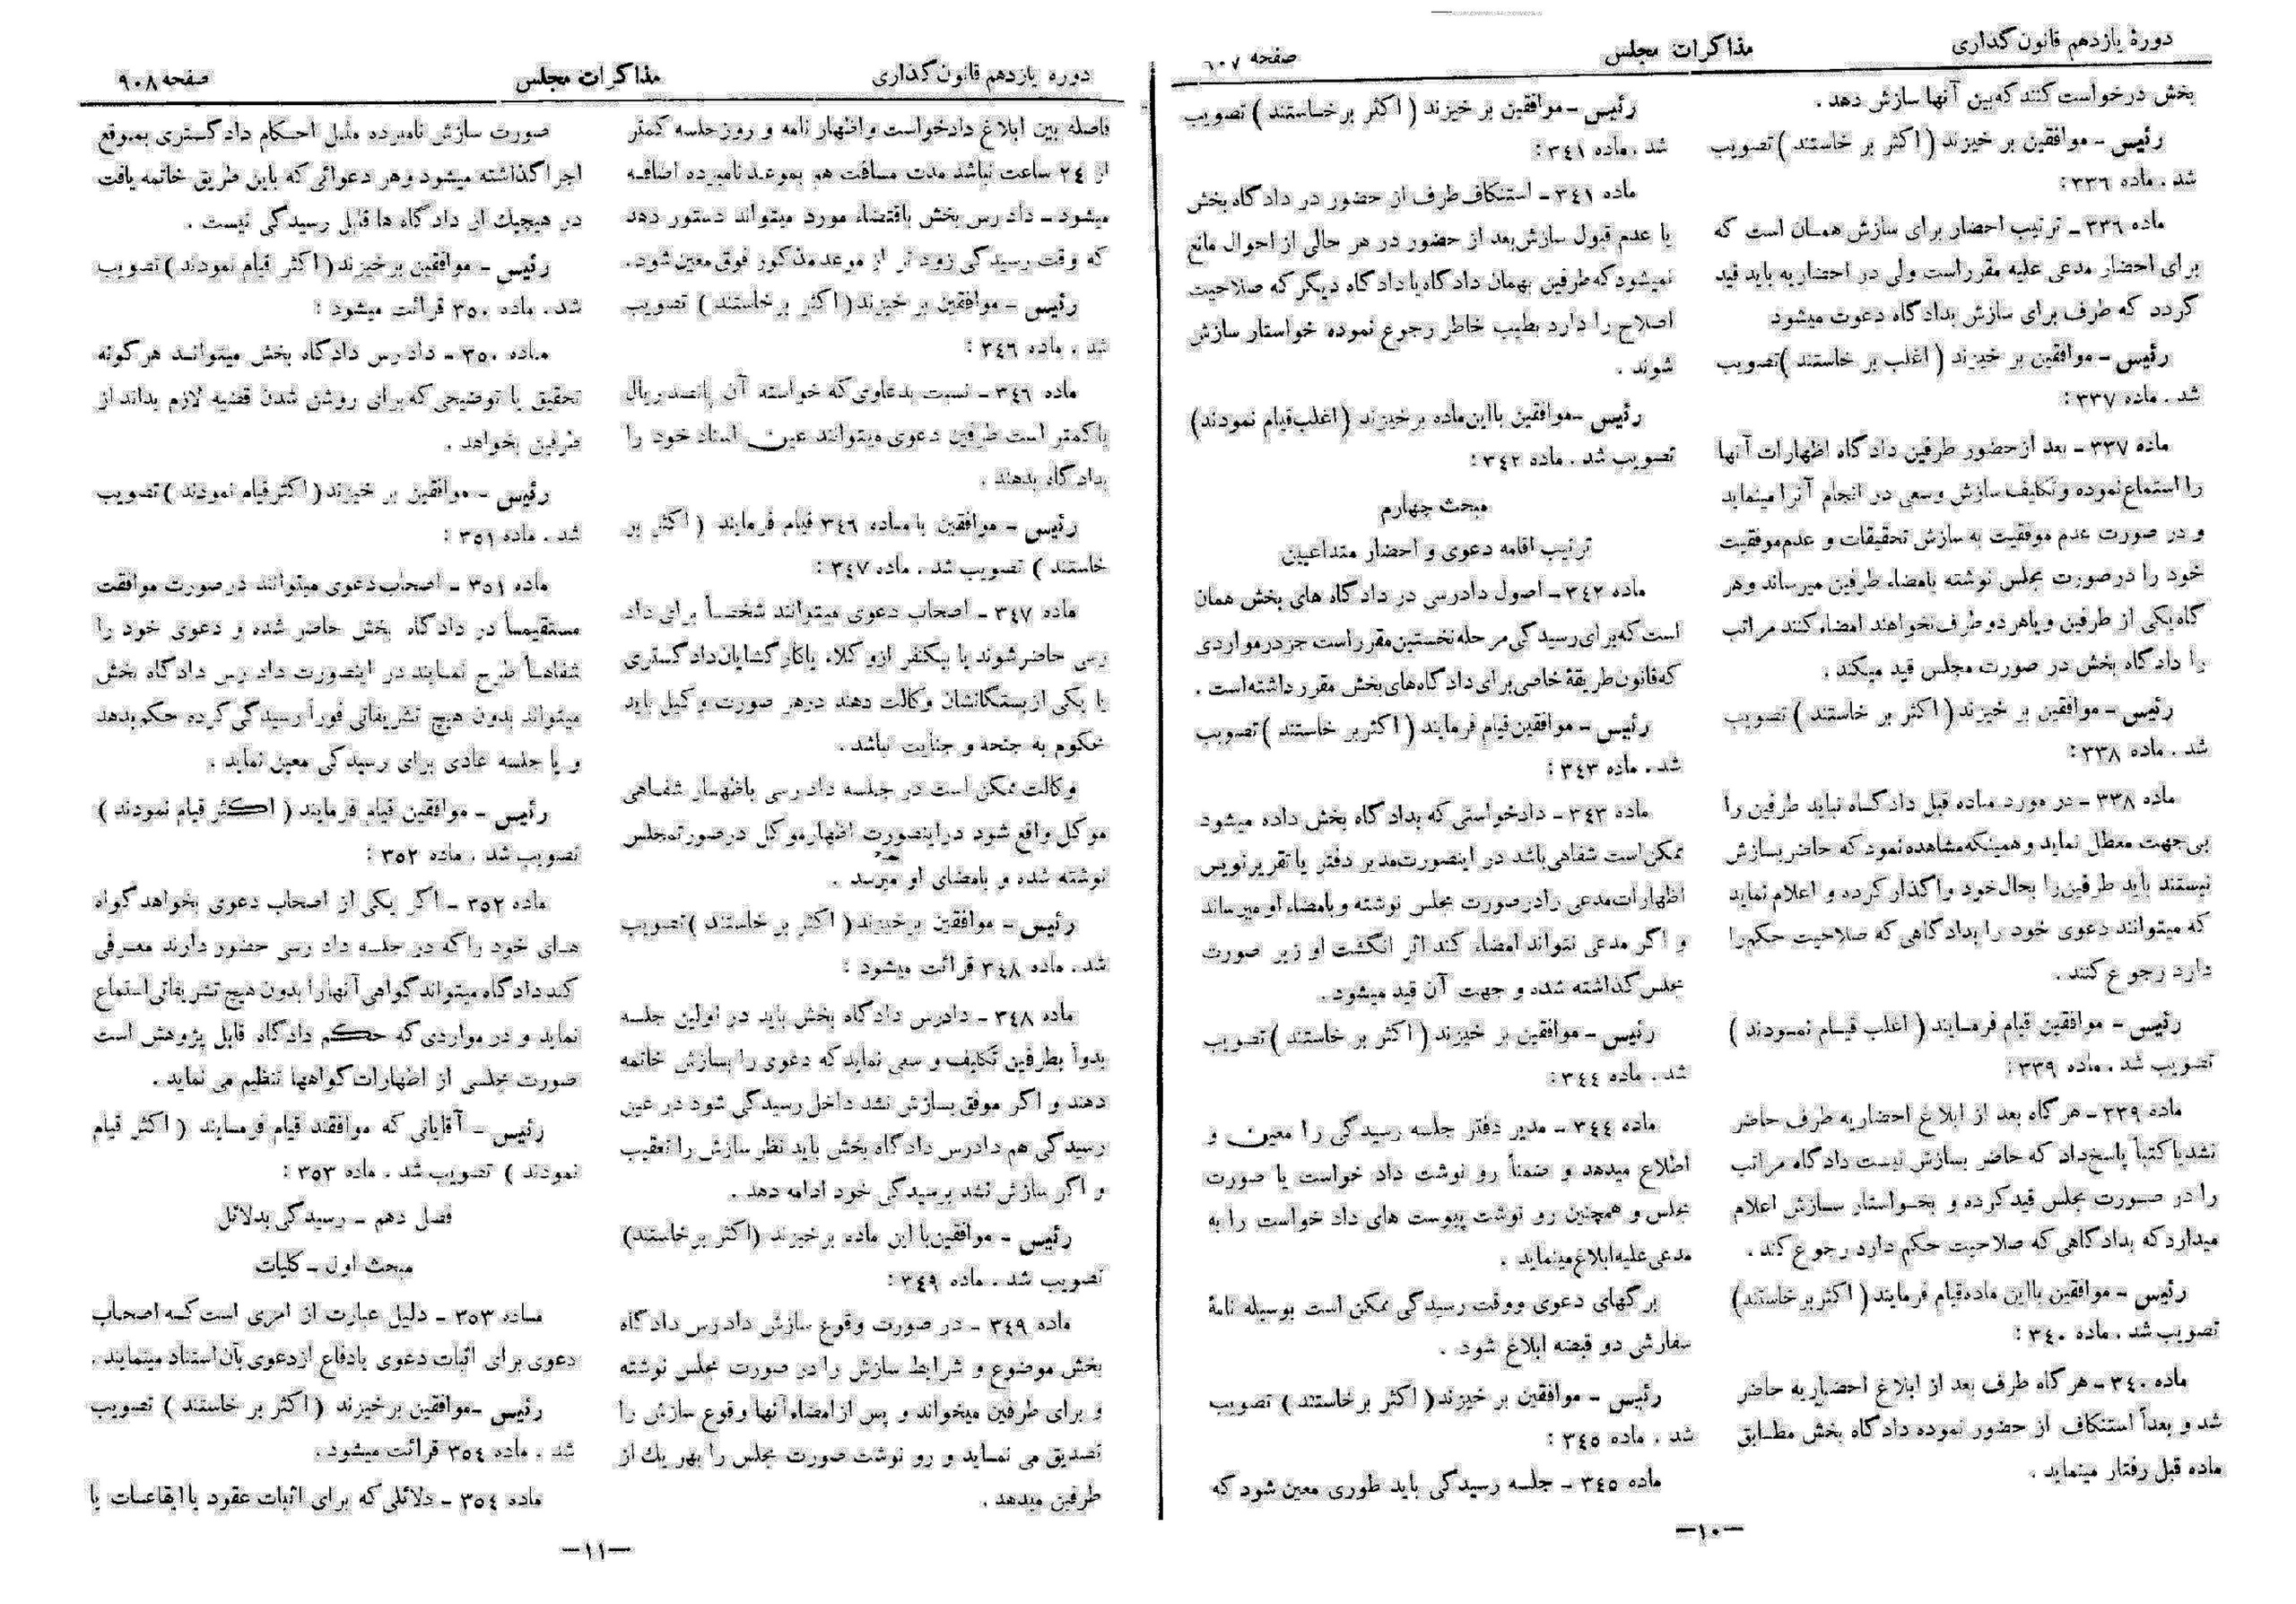 دورهٔ یازدهم قانون گذاری
مذاکرات مجلس
صفحه ٦٠٧
بخش درخواست کنند که بین آنها سازش دهد .
رئیس - موافقین بر خیزند ( اکثر بر خاستند ) تصویب
شد . ماده ٣٣٦ :
ماده ٣٣٦ - ترتیب احضار برای سازش همان است که
برای احضار مدعی علیه مقرر است ولی در احضاریه باید قید
گردد که طرف برای سازش بدادگاه دعوت میشود
رئیس - موافقین بر خیزند ( اغلب بر خاستند ) تصویب
شد . ماده ٣٣٧ :
ماده ٣٣٧ - بعد از حضور طرفین دادگاه اظهارات آنها
را استماع نموده و تکلیف سازش وسعی در انجام آنرا مینماید
و در صورت عدم موفقیت به سازش تحقیقات و عدم موفقیت
خود را در صورت مجلس نوشته بامضاء طرفین میرساند و هر
گاه یکی از طرفین و یا هر دو طرف نخواهند امضاء کنند مراتب
را دادگاه بخش در صورت مجلس قید میکند .
رئیس - موافقین بر خیزند ( اکثر بر خاستند ) تصویب
شد . ماده ٣٣٨ :
ماده ٣٣٨ - در مورد ماده قبل دادگاه نباید طرفین را
بی جهت معطل نماید و همینکه مشاهده نمود که حاضر بسازش
نیستند باید طرفین را بحال خود واگذار کرده و اعلام نماید
که میتوانند دعوی خود را بدادگاهی که صلاحیت حکم را
دارد رجوع کنند .
رئیس - موافقین قیام فرمایند ( اغلب قیام نمودند )
تصویب شد . ماده ٣٣٩ :
ماده ٣٣٩ - هر گاه بعد از ابلاغ احضاریه طرف حاضر
نشد یا کتباً پاسخ داد که حاضر بسازش نیست دادگاه مراتب
را در صورت مجلس قید کرده و بخواستار سازش اعلام
میدارد که بدادگاهی که صلاحیت حکم دارد رجوع کند .
رئیس - موافقین با این ماده قیام فرمایند ( اکثر بر خاستند )
تصویب شد . ماده ٣٤٠ :
ماده ٣٤٠ - هر گاه طرف بعد از ابلاغ احضاریه حاضر
شد و بعداً استنکاف از حضور نموده دادگاه بخش مطابق
ماده قبل رفتار مینماید .
رئیس - موافقین بر خیزند ( اکثر بر خاستند ) تصویب
شد . ماده ٣٤١ :
ماده ٣٤١ - استنکاف طرف از حضور در دادگاه بخش
یا عدم قبول سازش بعد از حضور در هر حالی از احوال مانع
نمیشود که طرفین بهمان دادگاه یا دادگاه دیگر که صلاحیت
اصلاح را دارد بطیب خاطر رجوع نموده خواستار سازش
شوند .
رئیس - موافقین با این ماده بر خیزند ( اغلب قیام نمودند )
تصویب شد . ماده ٣٤٢ :
مبحث چهارم
ترتیب اقامه دعوی و احضار متداعیین
ماده ٣٤٢ - اصول دادرسی در دادگاه های بخش همان
است که برای رسیدگی مرحله نخستین مقرر است جز در مواردی
که قانون طریقهٔ خاصی برای دادگاه های بخش مقرر داشته است .
رئیس - موافقین قیام فرمایند ( اکثر بر خاستند ) تصویب
شد . ماده ٣٤٣ :
ماده ٣٤٣ - دادخواستی که بدادگاه بخش داده میشود
ممکن است شفاهی باشد در اینصورت مدیر دفتر یا تقریر نویس
اظهارات مدعی را در صورت مجلس نوشته و بامضاء او میرساند
و اگر مدعی نتواند امضاء کند اثر انگشت او زیر صورت
مجلس گذاشته شده و جهت آن قید میشود .
رئیس - موافقین بر خیزند ( اکثر بر خاستند ) تصویب
شد . ماده ٣٤٤ :
ماده ٣٤٤ - مدیر دفتر جلسه رسیدگی را معین و
اطلاع میدهد و ضمناً رو نوشت داد خواست یا صورت
مجلس و همچنین رو نوشت پیوست های داد خواست را به
مدعی علیه ابلاغ مینماید .
برگهای دعوی و وقت رسیدگی ممکن است بوسیله نامهٔ
سفارشی دو قبضه ابلاغ شود .
رئیس - موافقین بر خیزند ( اکثر بر خاستند ) تصویب
شد . ماده ٣٤٥ :
ماده ٣٤٥ - جلسه رسیدگی باید طوری معین شود که
-١٠-
دوره یازدهم قانون گذاری
مذاکرات مجلس
صفحه ٩٠٨
فاصله بین ابلاغ دادخواست و اظهار نامه و روز جلسه کمتر
از ٢٤ ساعت نباشد مدت مسافت هم بموعد نامبرده اضافه
میشود - دادرس بخش باقتضاء مورد میتواند دستور دهد
که وقت رسیدگی زود تر از موعد مذکور فوق معین شود .
رئیس - موافقین بر خیزند ( اکثر بر خاستند ) تصویب
شد . ماده ٣٤٦ :
ماده ٣٤٦ - نسبت بدعاوی که خواسته آن پانصد ریال
یا کمتر است طرفین دعوی میتوانند عین اسناد خود را
بدادگاه بدهند .
رئیس - موافقین با ماده ٣٤٦ قیام فرمایند ( اکثر بر
خاستند ) تصویب شد . ماده ٣٤٧ :
ماده ٣٤٧ - اصحاب دعوی میتوانند شخصاً برای داد
رسی حاضر شوند یا بیکنفر از وکلاء یا کار گشایان دادگستری
یا یکی از بستگانشان وکالت دهند در هر صورت وکیل باید
محکوم به جنحه و جنایت نباشد .
وکالت ممکن است در جلسه دادرسی باظهار شفاهی
موکل واقع شود در اینصورت اظهار موکل در صورتمجلس
نوشته شده و بامضای او میرسد .
رئیس - موافقین برخیزند ( اکثر بر خاستند ) تصویب
شد . ماده ٣٤٨ قرائت میشود :
ماده ٣٤٨ - دادرس دادگاه بخش باید در اولین جلسه
بدواً بطرفین تکلیف و سعی نماید که دعوی را بسازش خاتمه
دهند و اگر موفق بسازش نشد داخل رسیدگی شود در عین
رسیدگی هم دادرس دادگاه بخش باید نظر سازش را تعقیب
و اگر سازش نشد برسیدگی خود ادامه دهد .
رئیس - موافقین با این ماده برخیزند ( اکثر بر خاستند )
تصویب شد . ماده ٣٤٩ :
ماده ٣٤٩ - در صورت وقوع سازش دادرس دادگاه
بخش موضوع و شرایط سازش را در صورت مجلس نوشته
و برای طرفین میخواند و پس از امضاء آنها وقوع سازش را
تصدیق می نماید و رو نوشت صورت مجلس را بهر یك از
طرفین میدهد .
صورت سازش نامبرده مثل احکام دادگستری بموقع
اجرا گذاشته میشود و هر دعوائی که باین طریق خاتمه یافت
در هیچیك از دادگاه ها قابل رسیدگی نیست .
رئیس - موافقین بر خیزند ( اکثر قیام نمودند ) تصویب
شد . ماده ٣٥٠ قرائت میشود :
ماده ٣٥٠ - دادرس دادگاه بخش میتواند هر گونه
تحقیق یا توضیحی که برای روشن شدن قضیه لازم بداند از
طرفین بخواهد .
رئیس - موافقین بر خیزند ( اکثر قیام نمودند ) تصویب
شد . ماده ٣٥١ :
ماده ٣٥١ - اصحاب دعوی میتوانند در صورت موافقت
مستقیماً در دادگاه بخش حاضر شده و دعوی خود را
شفاهاً طرح نمایند در اینصورت دادرس دادگاه بخش
میتواند بدون هیچ تشریفاتی فوراً رسیدگی کرده حکم بدهد
و یا جلسه عادی برای رسیدگی معین نماید .
رئیس - موافقین قیام فرمایند ( اکثر قیام نمودند )
تصویب شد . ماده ٣٥٢ :
ماده ٣٥٢ - اگر یکی از اصحاب دعوی بخواهد گواه
های خود را که در جلسه داد رسی حضور دارند معرفی
کند دادگاه میتواند گواهی آنها را بدون هیچ تشریفاتی استماع
نماید و در مواردی که حکم دادگاه قابل پژوهش است
صورت مجلسی از اظهارات گواهها تنظیم می نماید .
رئیس - آقایانی که موافقند قیام فرمایند ( اکثر قیام
نمودند ) تصویب شد . ماده ٣٥٣ :
فصل دهم - رسیدگی بدلائل
مبحث اول - کلیات
ماده ٣٥٣ - دلیل عبارت از امری است که اصحاب
دعوی برای اثبات دعوی یا دفاع از دعوی بآن استناد مینمایند .
رئیس - موافقین بر خیزند ( اکثر بر خاستند ) تصویب
شد . ماده ٣٥٤ قرائت میشود .
ماده ٣٥٤ - دلائلی که برای اثبات عقود یا ایقاعات یا
-١١-